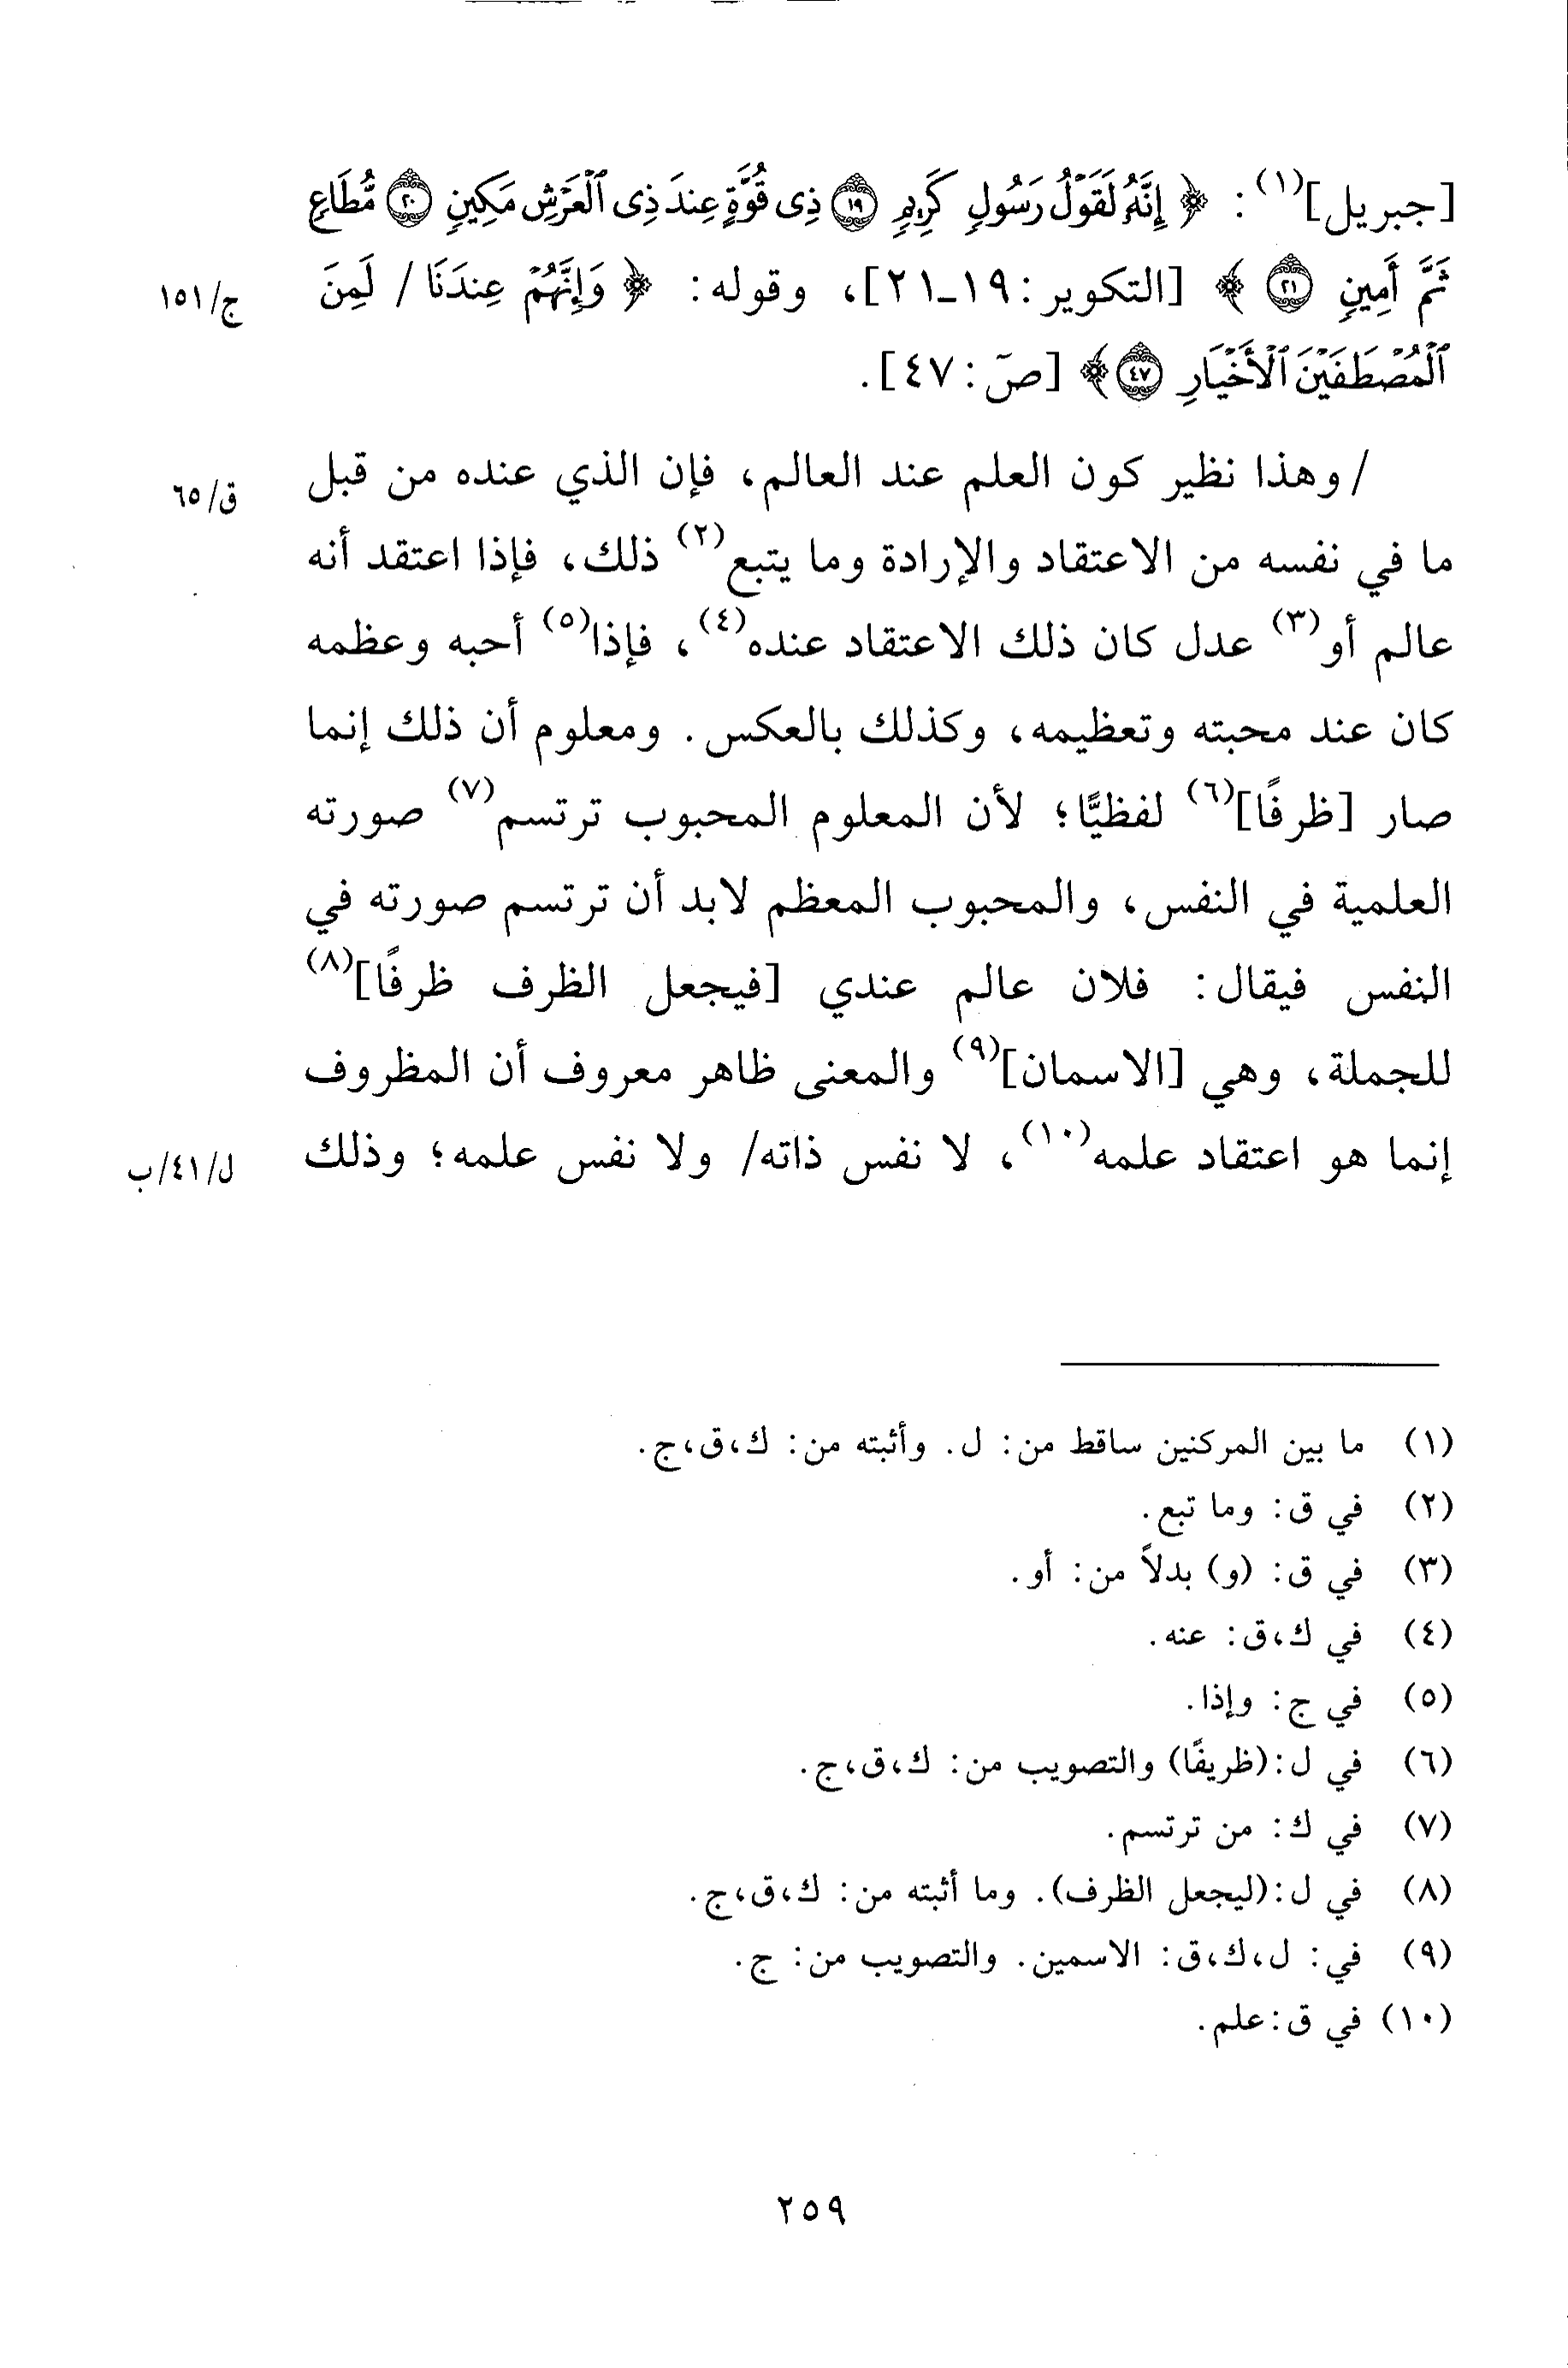 [جبريل](١): ﴿ إِنَّهُۥ لَقَوْلُ رَسُولٍ كَرِيمٍ ١٩ ذِى قُوَّةٍ عِندَ ذِى ٱلْعَرْشِ مَكِينٍ ٢٠ مُّطَاعٍ
ثَمَّ أَمِينٍ ٢١ ﴾ [التكوير: ١٩ـ٢١]، وقوله: ﴿ وَإِنَّهُمْ عِندَنَا / لَمِنَ
ج/١٥١
ٱلْمُصْطَفَيْنَ ٱلْأَخْيَارِ ٤٧ ﴾ [صٓ: ٤٧].
/ وهذا نظير كون العلم عند العالم، فإن الذي عنده من قبل
ق/٦٥
ما في نفسه من الاعتقاد والإرادة وما يتبع(٢) ذلك، فإذا اعتقد أنه
عالم أو(٣) عدل كان ذلك الاعتقاد عنده(٤)، فإذا(٥) أحبه وعظمه
كان عند محبته وتعظيمه، وكذلك بالعكس. ومعلوم أن ذلك إنما
صار [ظرفًا](٦) لفظيًّا؛ لأن المعلوم المحبوب ترتسم(٧) صورته
العلمية في النفس، والمحبوب المعظم لابد أن ترتسم صورته في
النفس فيقال: فلان عالم عندي [فيجعل الظرف ظرفًا](٨)
للجملة، وهي [الاسمان](٩) والمعنى ظاهر معروف أن المظروف
إنما هو اعتقاد علمه(١٠)، لا نفس ذاته/ ولا نفس علمه؛ وذلك
ل/٤١/ب
(١) ما بين المركنين ساقط من: ل. وأثبته من: ك،ق،ج.
(٢) في ق: وما تبع.
(٣) في ق: (و) بدلاً من: أو.
(٤) في ك،ق: عنه.
(٥) في ج: وإذا.
(٦) في ل:(ظريفًا) والتصويب من: ك،ق،ج.
(٧) في ك: من ترتسم.
(٨) في ل:(ليجعل الظرف). وما أثبته من: ك،ق،ج.
(٩) في: ل،ك،ق: الاسمين. والتصويب من: ج.
(١٠) في ق:علم.
٢٥٩